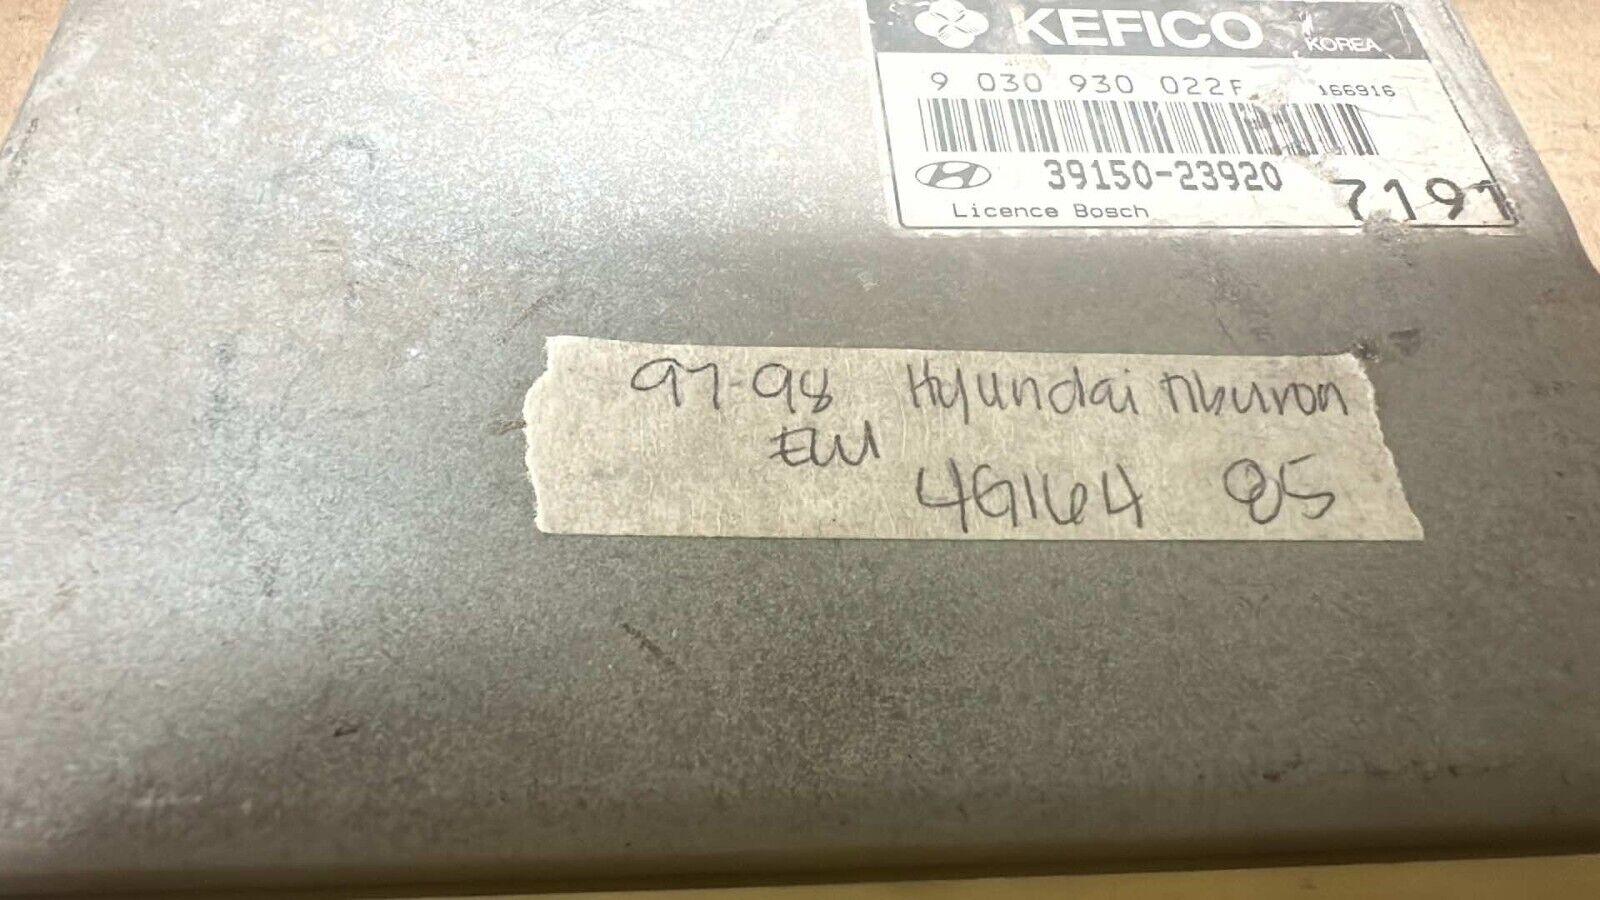 KEFICO KOREA
9 030 930 022F 166916
39150-23920
Licence Bosch 7191
97-98 Hyundai Tiburon
ECM
4G164 85